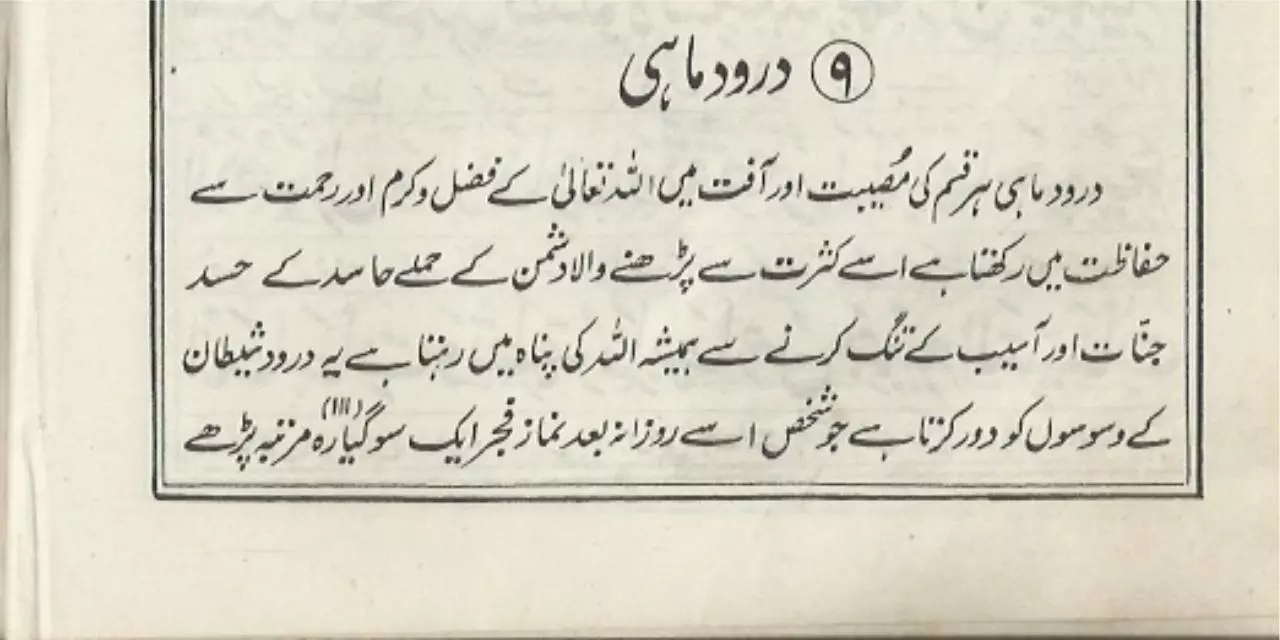 ۹ درود ماہی
درود ماہی ہر قسم کی مُصیبت اور آفت میں اللہ تعالیٰ کے فضل و کرم اور رحمت سے
حفاظت میں رکھتا ہے اسے کثرت سے پڑھنے والا دشمن کے حملے حاسد کے حسد
جنّات اور آسیب کے تنگ کرنے سے ہمیشہ اللہ کی پناہ میں رہتا ہے یہ درود شیطان
کے وسوسوں کو دور کرتا ہے جو شخص اسے روزانہ بعد نماز فجر ایک سو گیارہ (۱۱۱) مرتبہ پڑھے